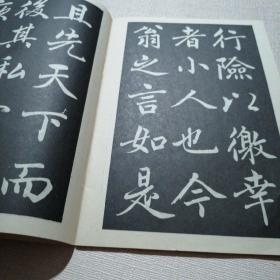 行險以徼幸
者小人也今
翁之言如是
且先天下而
後其私